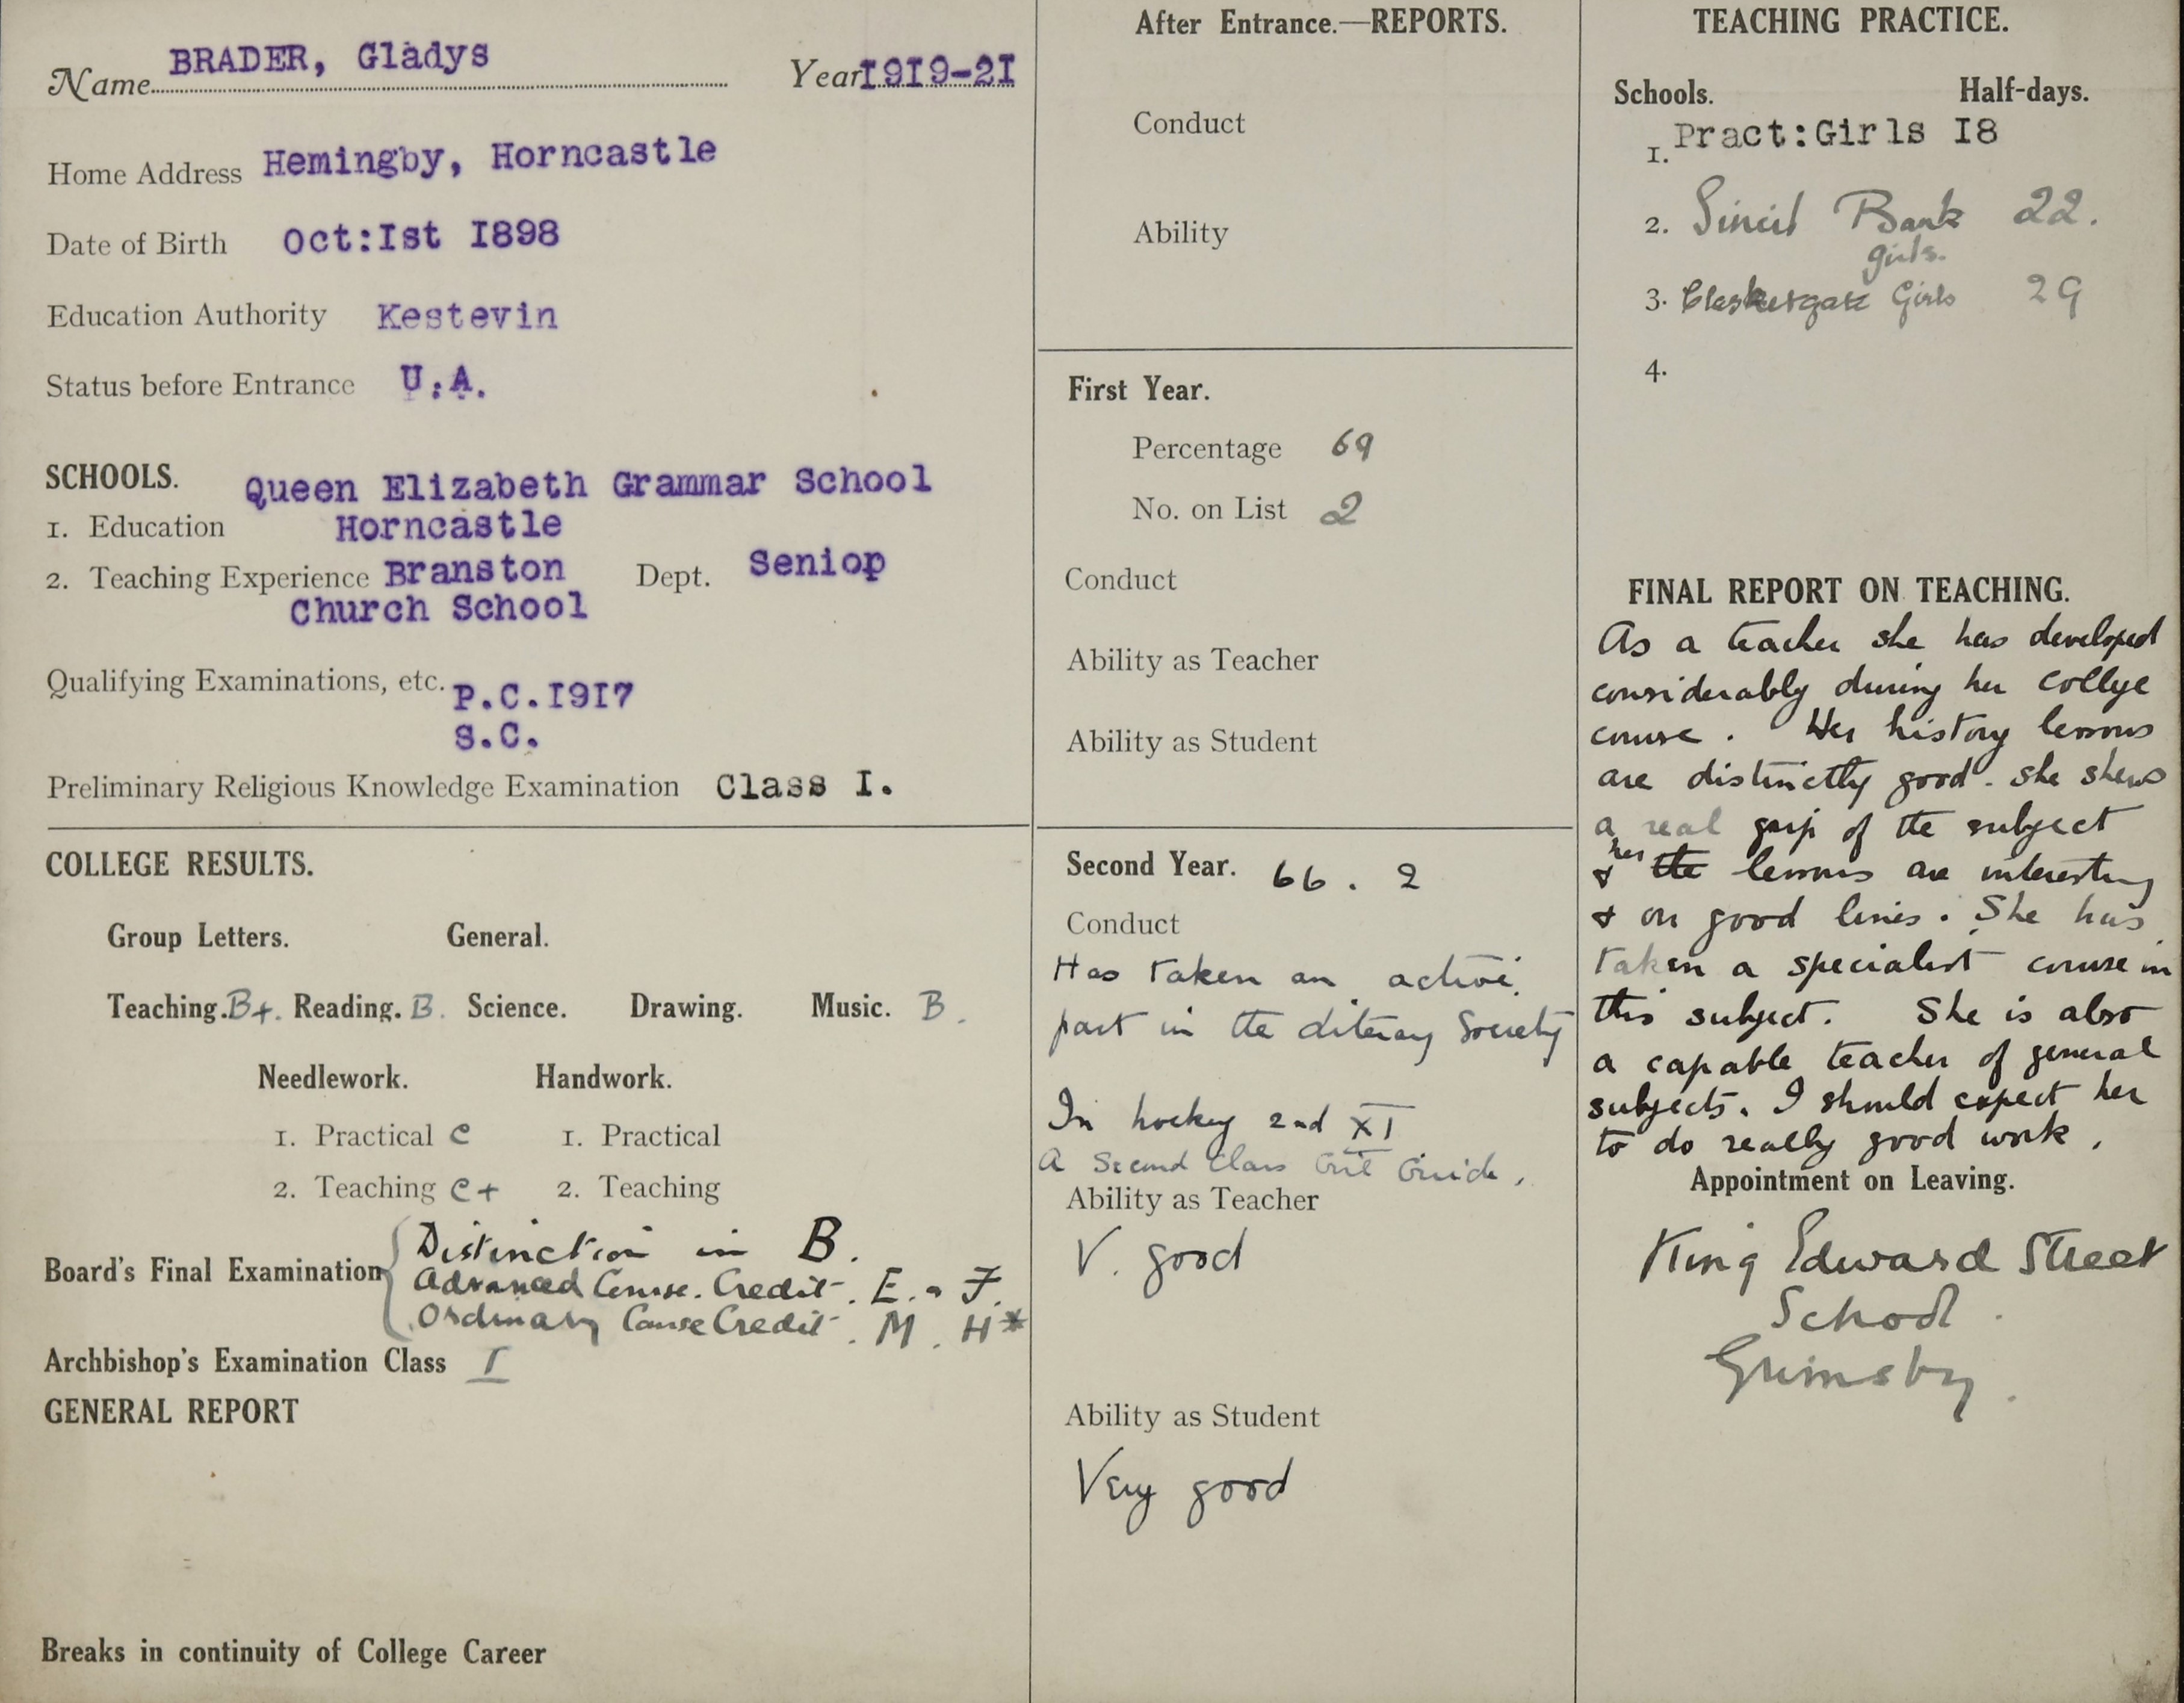 Name BRADER, Gladys Year I9I9-2I
Home Address Hemingby, Horncastle
Date of Birth Oct:Ist I898
Education Authority Kestevin
Status before Entrance U.A.
SCHOOLS. Queen Elizabeth Grammar School
1. Education Horncastle
2. Teaching Experience Branston Dept. Senior
Church School
Qualifying Examinations, etc. P.C.I9I7
S.C.
Preliminary Religious Knowledge Examination Class I.
COLLEGE RESULTS.
Group Letters. General.
Teaching. B+. Reading. B. Science. Drawing. Music. B.
Needlework. Handwork.
1. Practical C 1. Practical
2. Teaching C+ 2. Teaching
Distinction in B.
Board's Final Examination Advanced Course. Credit. E. F.
Ordinary Course Credit. M. H*
Archbishop's Examination Class I
GENERAL REPORT
Breaks in continuity of College Career
After Entrance.—REPORTS.
Conduct
Ability
First Year.
Percentage 69
No. on List 2
Conduct
Ability as Teacher
Ability as Student
Second Year. 66. 2
Conduct
Has taken an active
part in the Literary Society
In hockey 2nd XI
A Second Class Girl Guide.
Ability as Teacher
V. good
Ability as Student
Very good
TEACHING PRACTICE.
Schools. Half-days.
1. Pract:Girls I8
2. Sincil Bank 22.
girls.
3. Clasketgate Girls 29
4.
FINAL REPORT ON TEACHING.
As a teacher she has developed
considerably during her college
course. Her history lessons
are distinctly good - she shews
a real grip of the subject
her
& the lessons are interesting
& on good lines. She has
taken a specialist course in
this subject. She is also
a capable teacher of general
subjects. I should expect her
to do really good work.
Appointment on Leaving.
King Edward Street
School.
Grimsby.